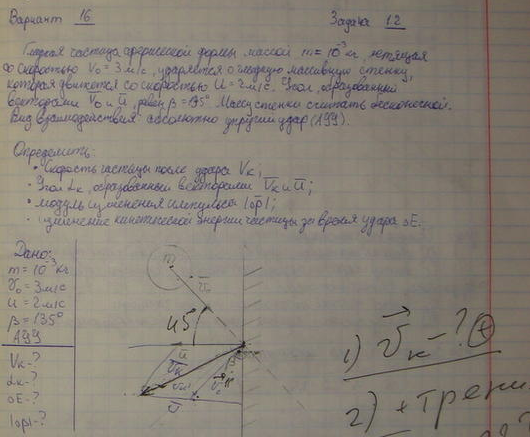 Вариант 16
Задача 1.2
Гладкая частица сферической формы массой m = 10⁻³ кг, летящая
со скоростью V₀ = 3 м/с, ударяется о гладкую массивную стенку,
которая движется со скоростью U = 2 м/с. Угол, образованный
векторами V̄₀ и ū, равен β = 135° Массу стенки считать бесконечной.
Вид взаимодействия абсолютно упругий удар (АУУ).
Определить:
• Скорость частицы после удара Vк;
• Угол αк, образованный векторами V̄к и ū;
• модуль изменения импульса |Δp|;
• изменение кинетической энергии частицы за время удара ΔE.
Дано:
m = 10⁻³ кг
V₀ = 3 м/с
u = 2 м/с
β = 135°
АУУ
Vк - ?
αк - ?
ΔE - ?
|Δp| - ?
m
v̄₀
45°
ū
v̄к
β
ū
1) v⃗к - ? +
2) + трени